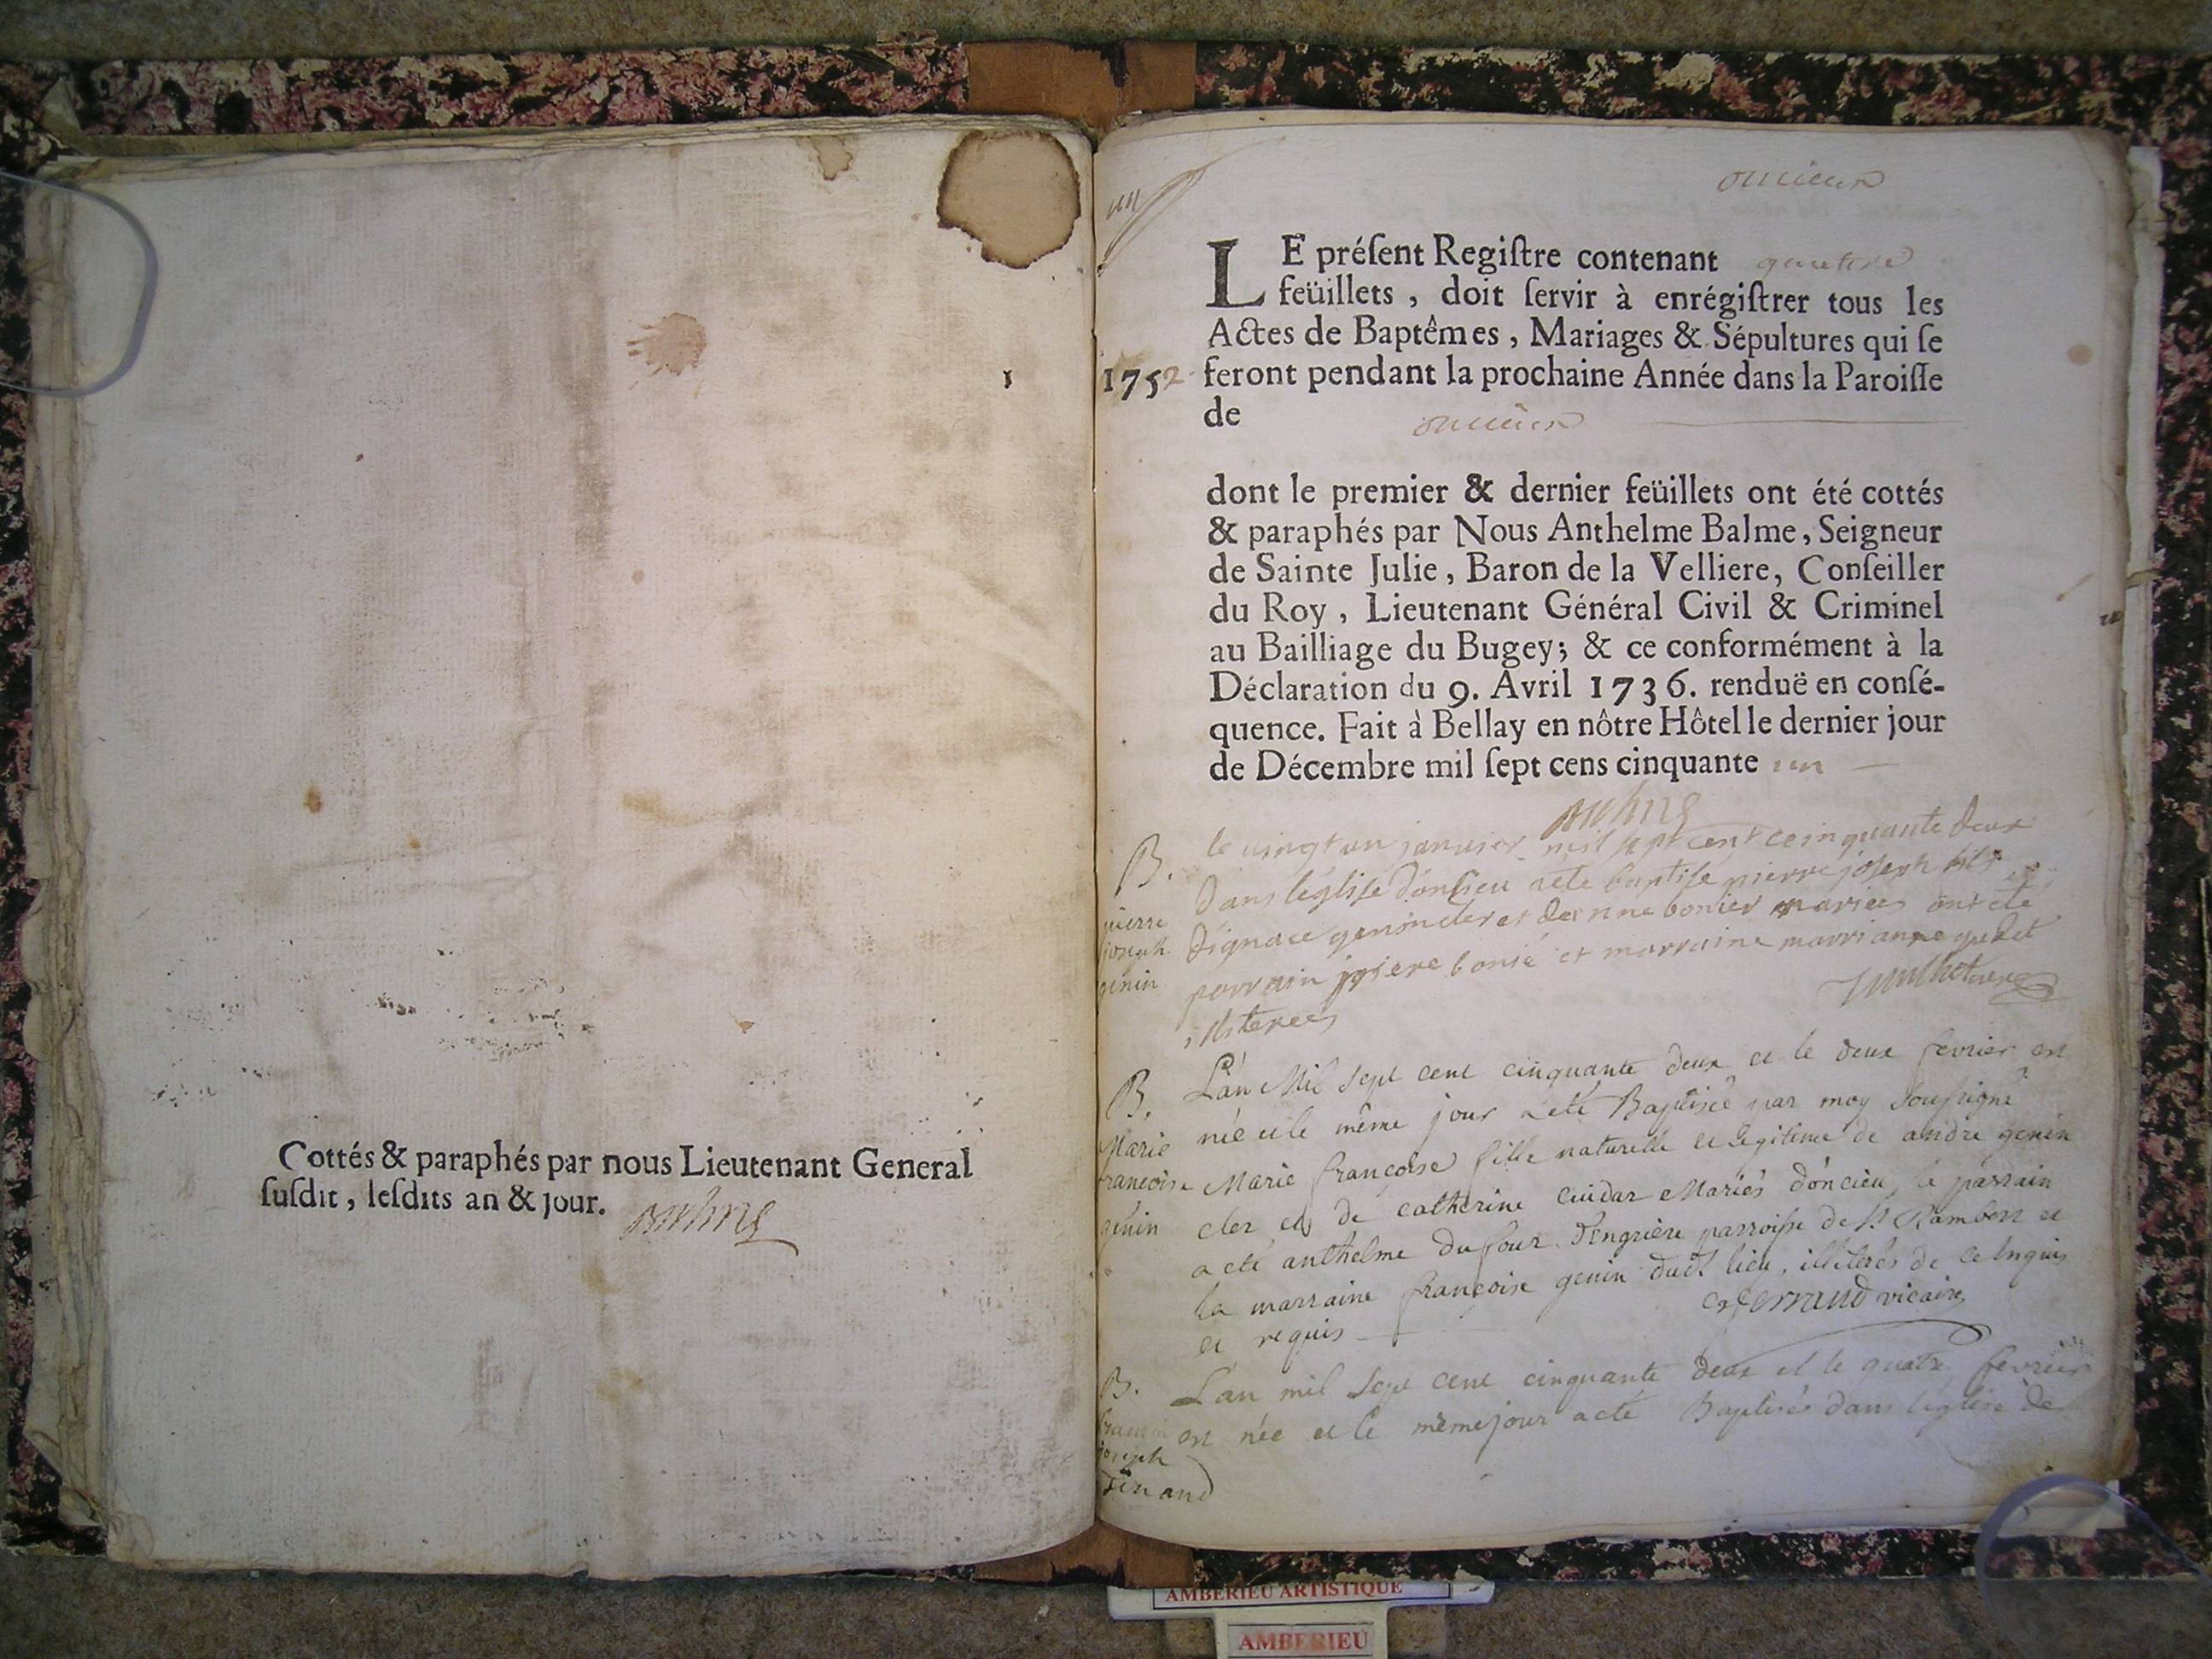 Cottés & paraphés par nous Lieutenant General
ſuſdit, leſdits an & jour.
oncieux
LE préſent Regiſtre contenant quatre
feüillets, doit ſervir à enrégiſtrer tous les
Actes de Baptêmes, Mariages & Sépultures qui ſe
1752 feront pendant la prochaine Année dans la Paroiſſe
de oncieux
dont le premier & dernier feüillets ont été cottés
& paraphés par Nous Anthelme Balme, Seigneur
de Sainte Julie, Baron de la Velliere, Conſeiller
du Roy, Lieutenant Général Civil & Criminel
au Bailliage du Bugey; & ce conformément à la
Déclaration du 9. Avril 1736. renduë en conſé-
quence. Fait à Bellay en nôtre Hôtel le dernier jour
de Décembre mil ſept cens cinquante un
B.
pierre
joseph
genin
le vingt un janvier mil sept cent ceinquante deux
Dans léglise dóncieu a ete baptisé pierre joseph fils
dignace genin cler et bonier mariees ont ete
parrain bonié et marraine marrianne
B.
Marie
francoise
genin
L'an Mil Sept cent cinquante deux et le deux fevrier est
née et le même jour a eté Baptisée par moy Soussigné
Marie francoise fille naturelle et legitime de andre genin
cler et de catherine cuidar Mariés dóncieu, le parrain
a eté anthelme dufour d'engriere parroisse de St Rambert et
la marraine francoise genin dudt lieu, illiterés de ce enquis
et requis
ferrand vicaire
B.
joseph
L'an mil Sept cent cinquante deux et le quatre fevrier
est née et le même jour a eté Baptisés dans léglise de
AMBERIEU ARTISTIQUE
AMBERIEU